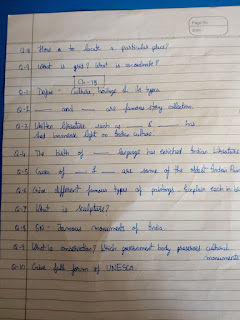 Page No.
Date
Q-8 How to locate a particular place?
Q-9 What is grid? What is co-ordinate?
Ch-18
Q-1 Define - Culture, heritage & its types
Q-2 ___ and ___ are famous story collection.
Q-3 Written literature such as ___ & ___ has
shed immense light on Indian culture.
Q-4 The birth of ___ language has enriched Indian literature
Q-5 Caves of ___ & ___ are some of the oldest Indian
Q-6 Give different famous types of paintings. Explain each in
Q-7 What is sculpture?
Q-8 SN - Famous monuments of India.
Q-9 What is conservation? Which government body preserves cultural
monuments
Q-10 Give full form of UNESCO.